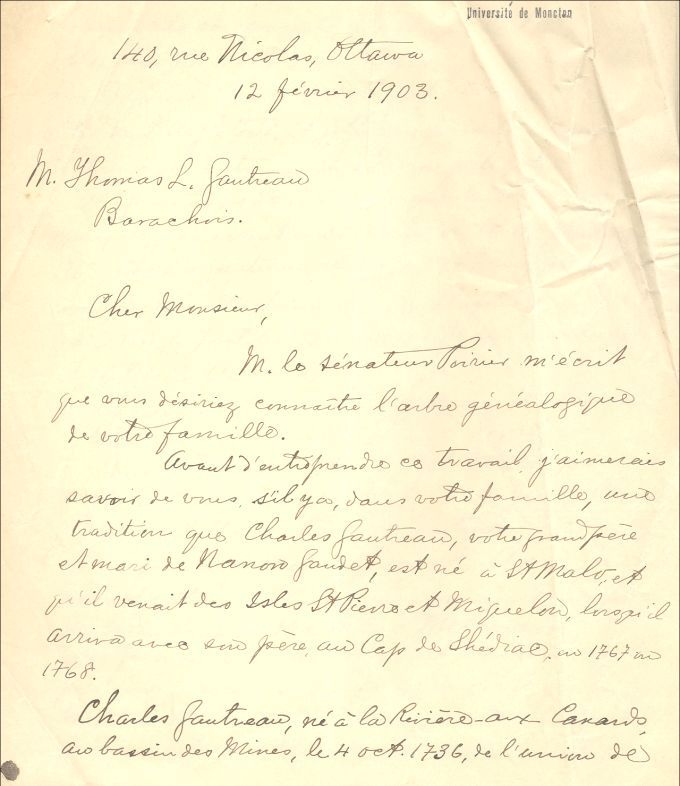 Université de Moncton
140, rue Nicolas, Ottawa
12 février 1903.
M. Thomas L. Gautreau
Barachois.
Cher Monsieur,
M. le sénateur Poirier m'écrit
que vous désiriez connaître l'arbre généalogique
de votre famille.
Avant d'entreprendre ce travail, j'aimerais
savoir de vous, s'il y a, dans votre famille, une
tradition que Charles Gautreau, votre grand père
et mari de Nanon Gaudet, est né à St Malo, et
qu'il venait des Isles St Pierre et Miquelon, lorsqu'il
arriva avec son père, au Cap de Shédiac, en 1767 ou
1768.
Charles Gautreau, né à la Rivière-aux Canards,
au bassin des Mines, le 4 oct. 1736, de l'union de